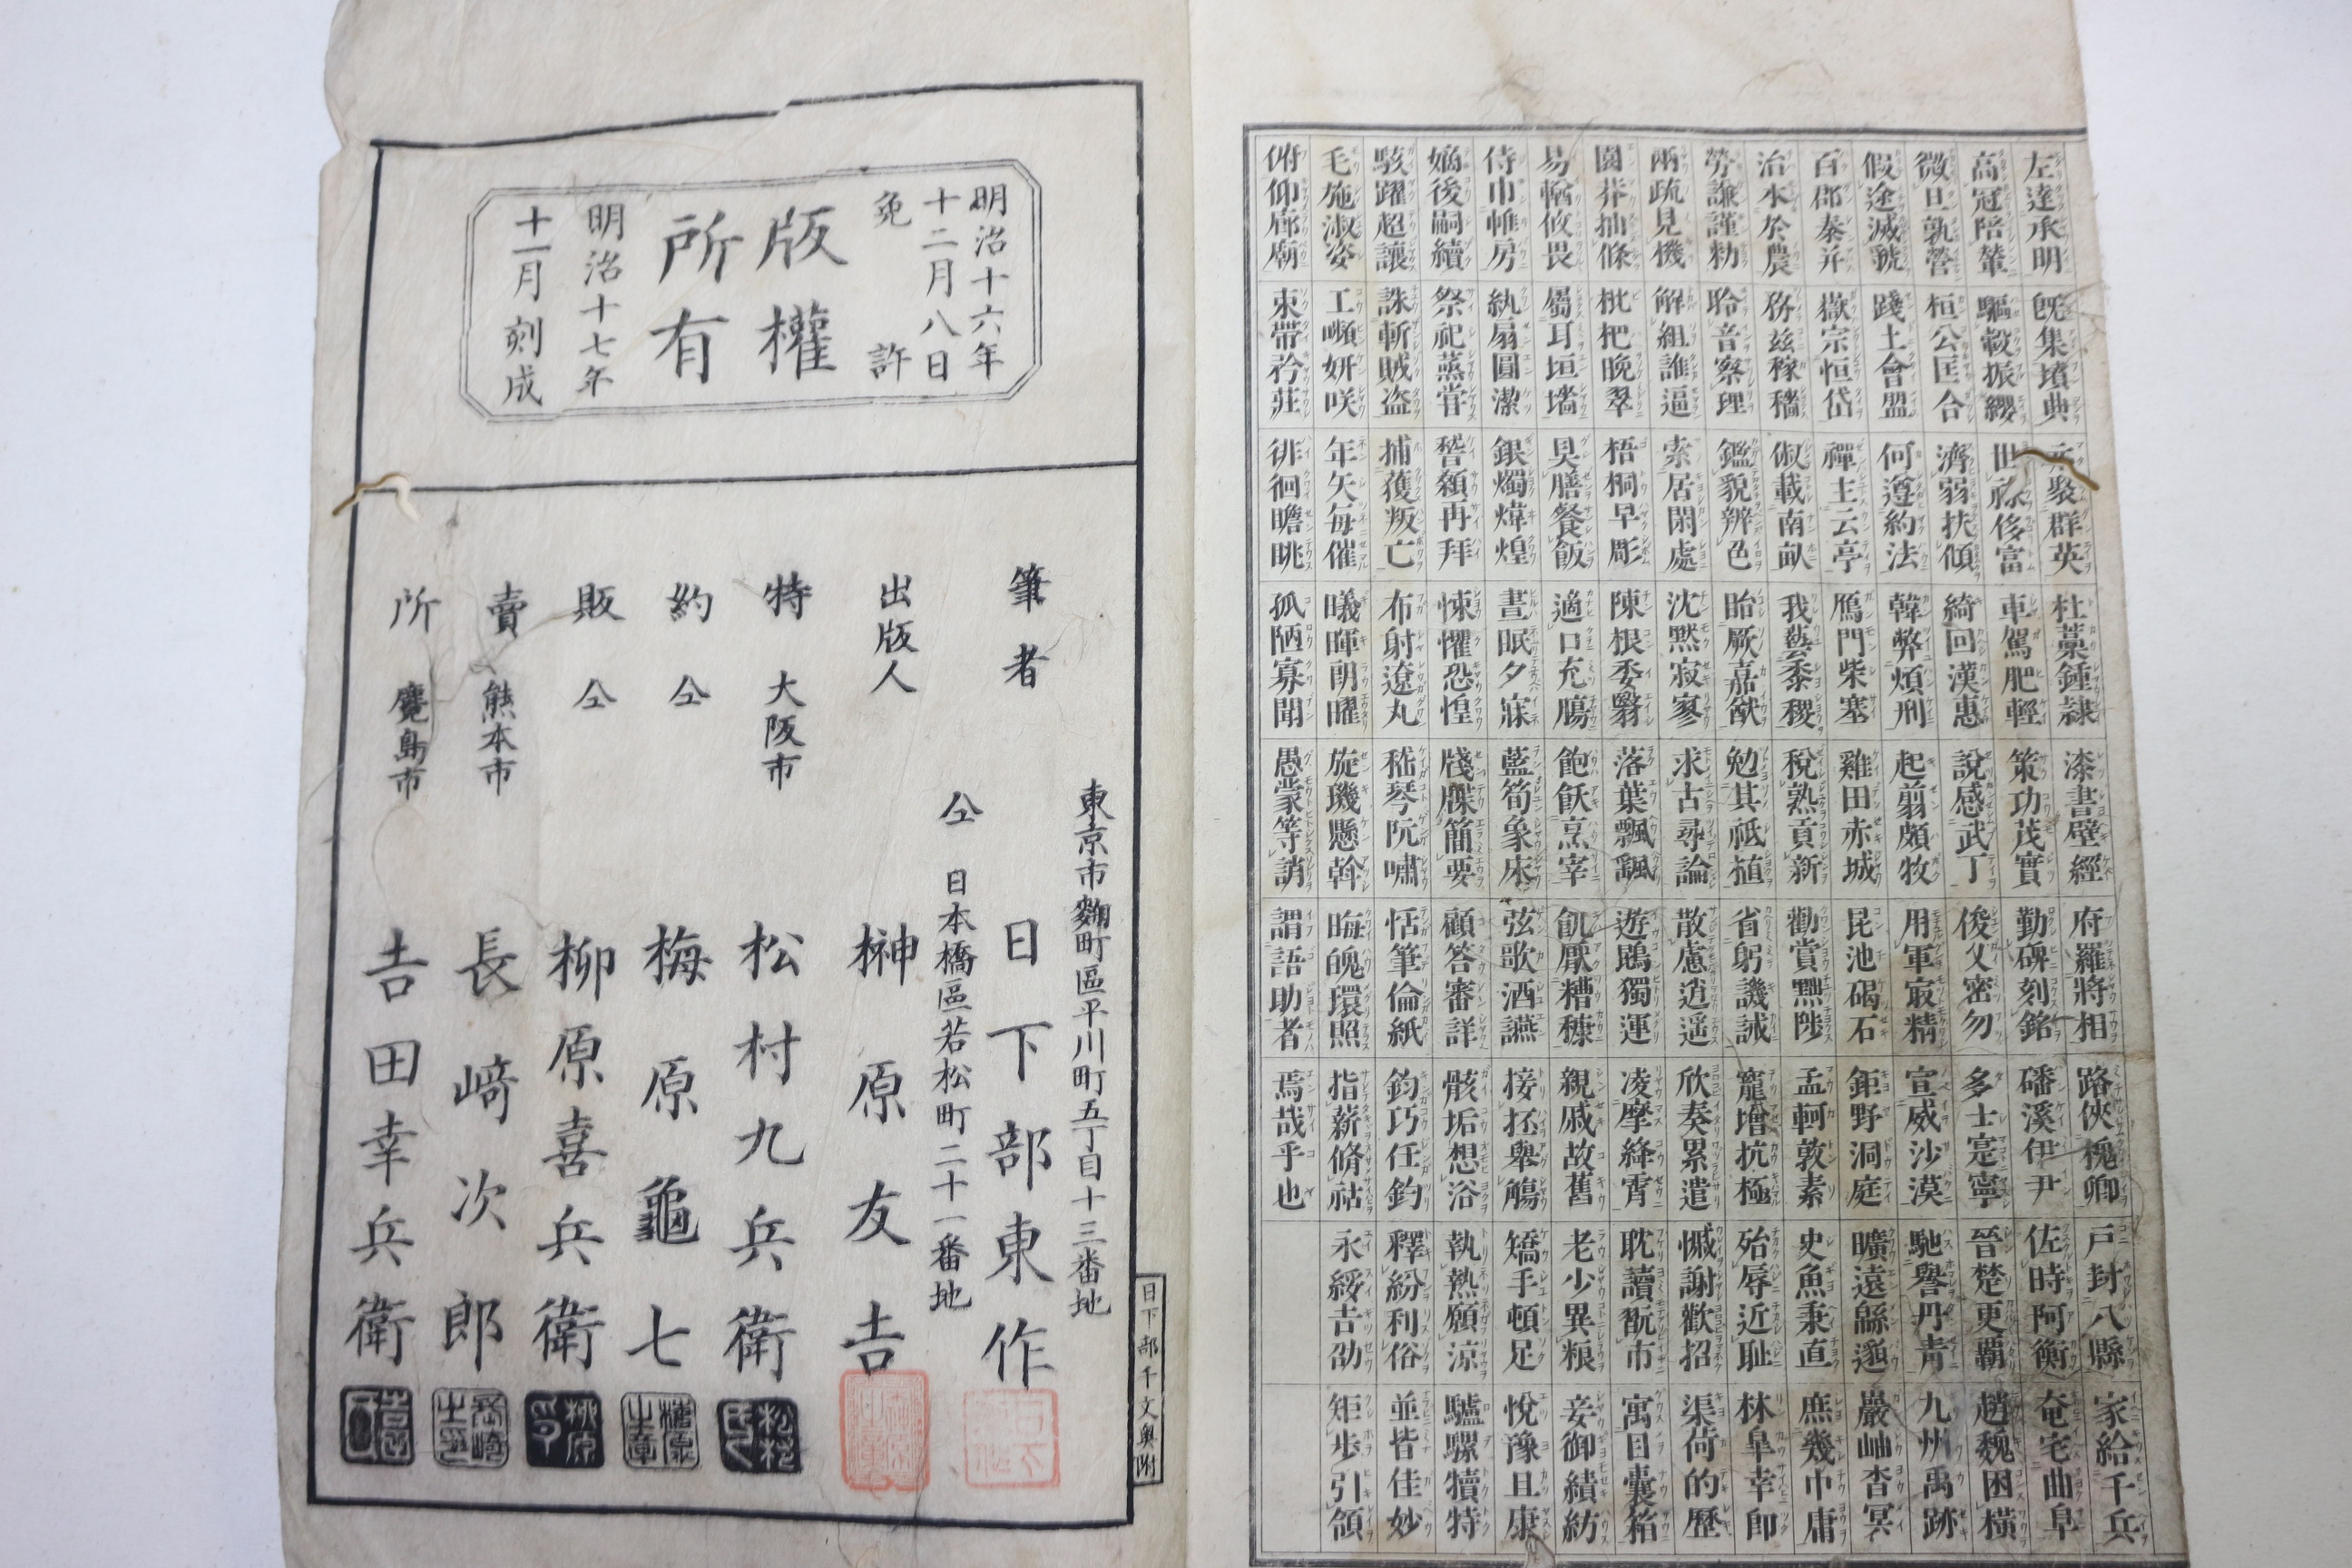 左達承明 既集墳典 亦聚群英 杜藁鍾隷 漆書壁經 府羅將相 路俠槐卿 戸封八縣 家給千兵
高冠陪輦 驅轂振纓 世祿侈富 車駕肥輕 策功茂實 勒碑刻銘 磻溪伊尹 佐時阿衡 奄宅曲阜
微旦孰營 桓公匡合 濟弱扶傾 綺回漢惠 說感武丁 俊乂密勿 多士寔寧 晉楚更覇 趙魏困橫
假途滅虢 踐土會盟 何遵約法 韓弊煩刑 起翦頗牧 用軍㝡精 宣威沙漠 馳譽丹青 九州禹跡
百郡秦并 嶽宗恒岱 禪主云亭 鴈門柴塞 雞田赤城 昆池碣石 鉅野洞庭 曠遠緜邈 巖岫杳冥
治本於農 務茲稼穡 俶載南畝 我藝黍稷 稅熟貢新 勸賞黜陟 孟軻敦素 史魚秉直 庶幾中庸
勞謙謹勅 聆音察理 鑑貌辨色 貽厥嘉猷 勉其祗植 省躬譏誡 寵增抗極 殆辱近恥 林皐幸即
兩疏見機 解組誰逼 索居閑處 沈默寂寥 求古尋論 散慮逍遥 欣奏累遣 慼謝歡招 渠荷的歷
園莽抽條 枇杷晩翠 梧桐早彫 陳根委翳 落葉飄颻 遊鵾獨運 凌摩絳霄 耽讀翫市 寓目囊箱
易輶攸畏 屬耳垣墻 具膳餐飯 適口充膓 飽飫烹宰 飢厭糟糠 親戚故舊 老少異粮 妾御績紡
侍巾帷房 紈扇圓潔 銀燭煒煌 晝眠夕寐 藍筍象床 弦歌酒讌 接杯擧觴 矯手頓足 悅豫且康
嫡後嗣續 祭祀蒸甞 稽顙再拜 悚懼恐惶 牋牒簡要 顧答審詳 骸垢想浴 執熱願涼 驢騾犢特
駭躍超讓 誅斬賊盗 捕獲叛亡 布射遼丸 嵇琴阮嘯 恬筆倫紙 鈞巧任釣 釋紛利俗 並皆佳妙
毛施淑姿 工嚬妍咲 年矢毎催 曦暉朗曜 旋璣懸斡 晦魄環照 指薪脩祜 永綏吉劭 矩歩引領
俯仰廊廟 束帶矜莊 徘徊瞻眺 孤陋寡聞 愚蒙等誚 謂語助者 焉哉乎也
明治十六年
十二月八日
免許
版權
所有
明治十七年
十一月刻成
東京市麹町區平川町五丁目十三番地
筆者 日下部東作
仝 日本橋區若松町二十一番地
出版人 榊原友吉
特 大阪市 松村九兵衛
約 仝 梅原龜七
販 仝 柳原喜兵衛
賣 熊本市 長﨑次郎
所 麑島市 吉田幸兵衛
日下部千文奥附